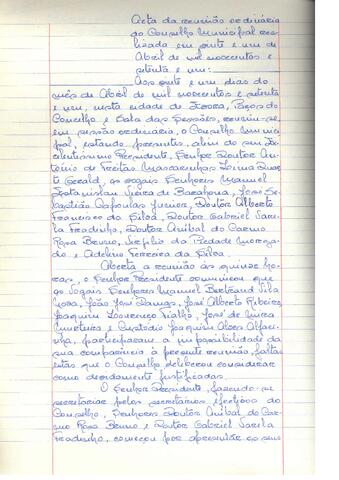 Acta da reunião ordinária
do Conselho Municipal rea-
lizada em vinte e um de
Abril de mil novecentos e
setenta e um:
Aos vinte e um dias do
mês de Abril de mil novecentos e setenta
e um, nesta cidade de Évora, Paços do
Concelho e Sala das Sessões, reuniu-se
em sessão ordinária, o Conselho Muni-
cipal, estando presentes, além do seu Ex-
celentíssimo Presidente, Senhor Doutor An-
tónio de Freitas Mascarenhas
Gerald, os vogais Senhores Manuel
Estanislau Vieira de Barahona, José Se-
bastião Capoulas Junior, Doutor Alberto
Francisco da Silva, Doutor Gabriel Vare-
la Fradinho, Doutor Anibal do Carmo
Rosa Bruno, da Piedade Morga-
do e Adelino Ferreira da Silva.
Aberta a reunião às quinze ho-
ras, o Senhor Presidente comunicou que
os Vogais Senhores Manuel Bertrand Vila
Nova, João José Ramos, José Alberto Ribeiro,
Joaquim Lourenço Fialho, José de
e Custódio Joaquim Alves
participaram a impossibilidade da
sua comparência à presente reunião, faltas
estas que o Conselho deliberou considerar
como devidamente justificadas.
O Senhor Presidente, fazendo-se
secretariar pelos secretários efectivos do
Conselho, Senhores Doutor Anibal do Car-
mo Rosa Bruno e Doutor Gabriel Varela
Fradinho, começou por apresentar os seus